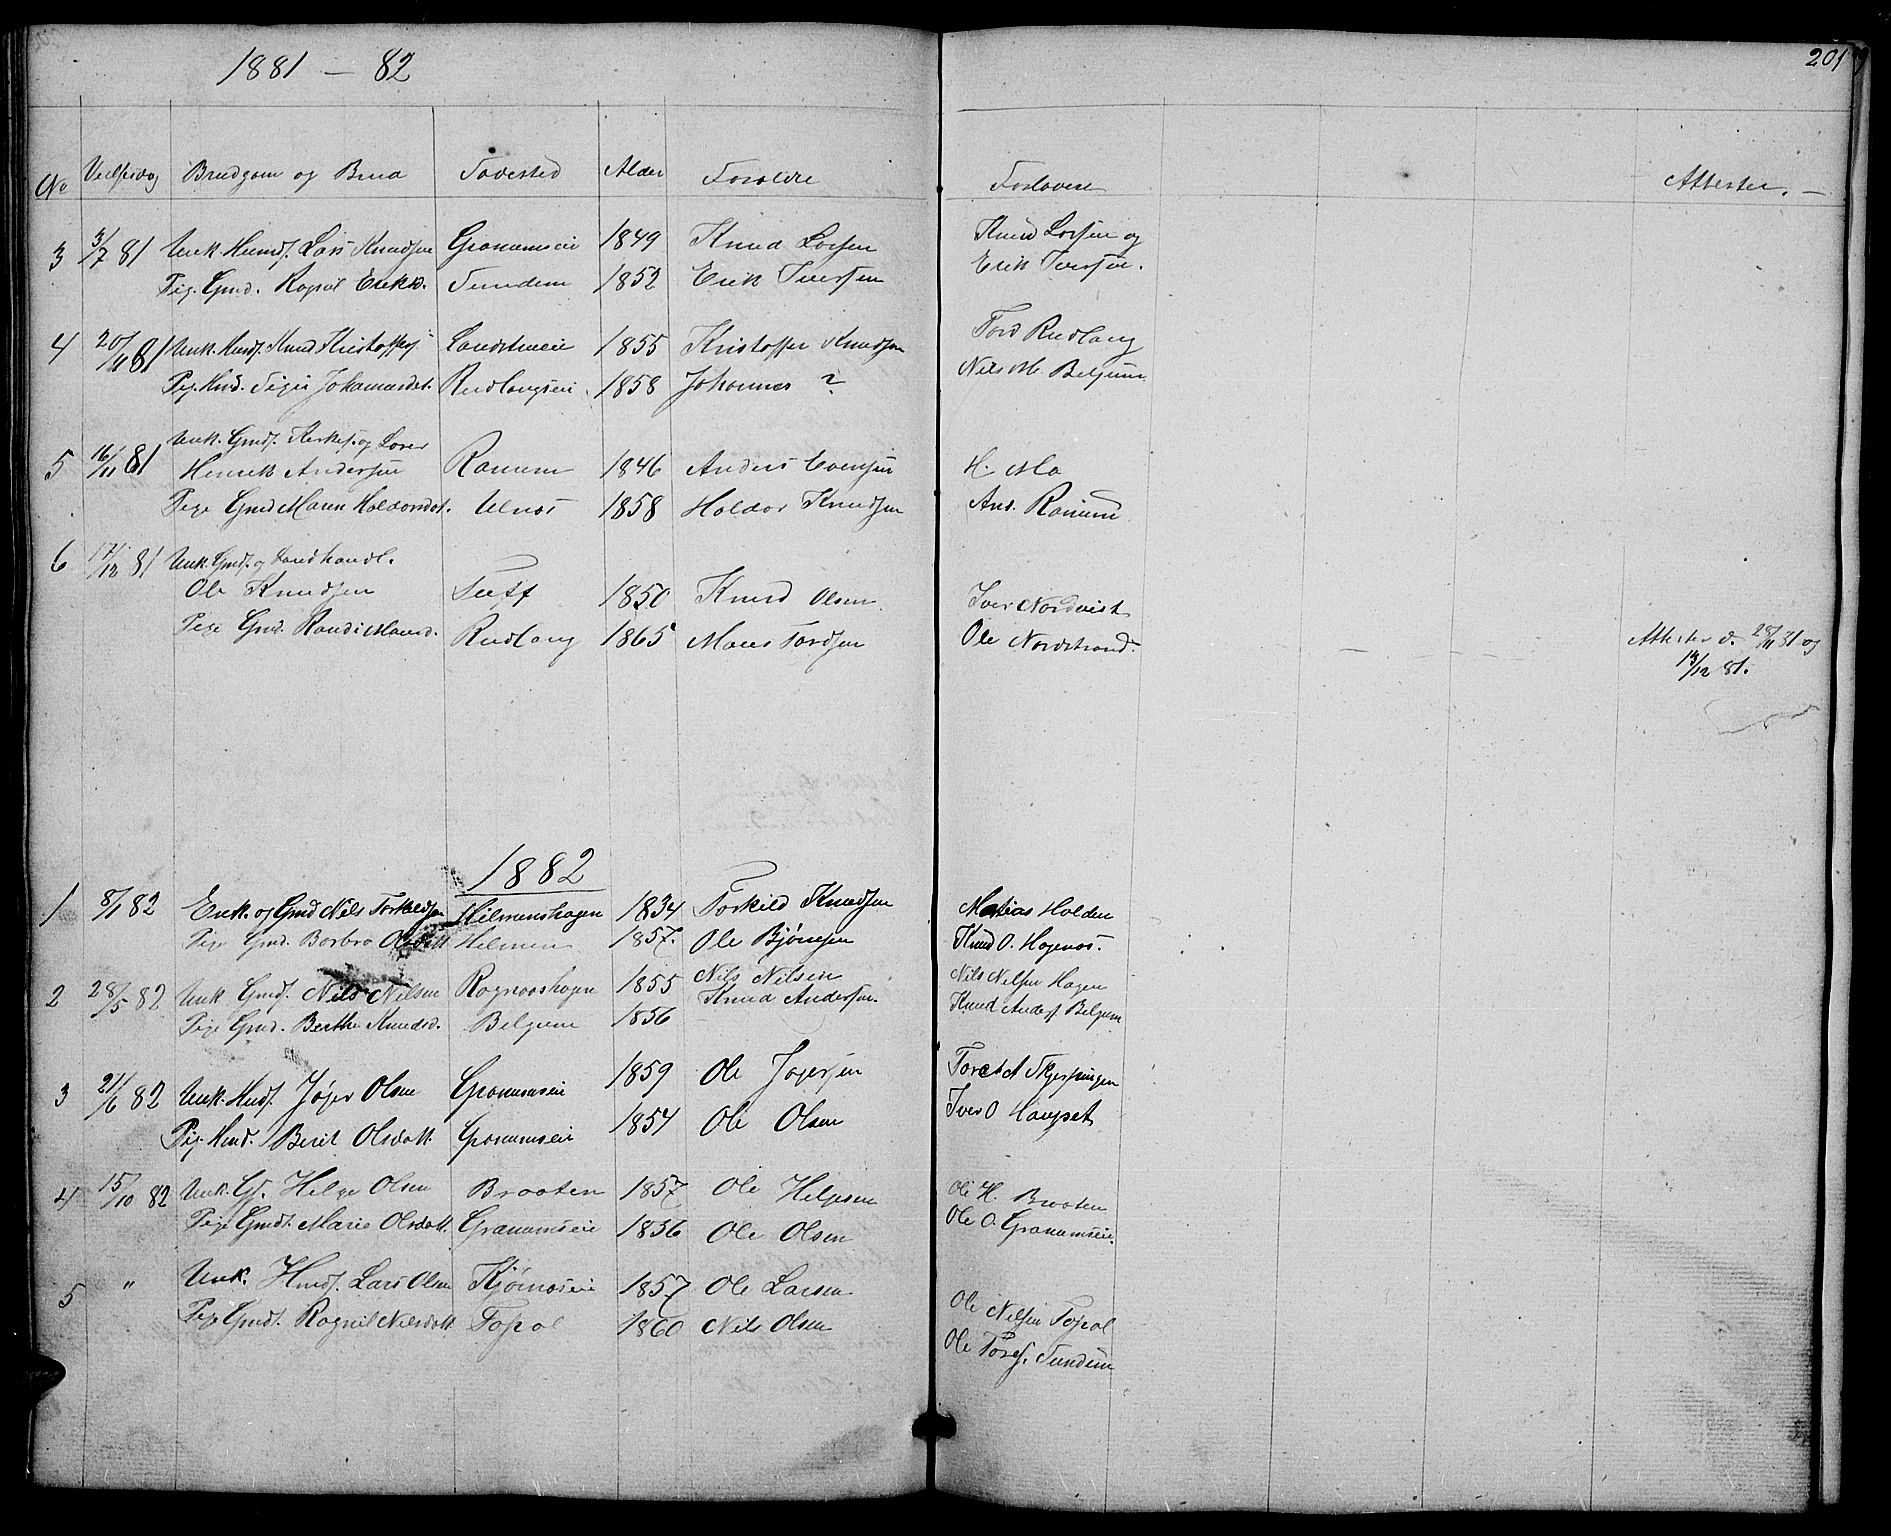 1881 – 82
201
No Vielsesdag Brudgom og Brud Fødested Alder Forældre Forlovere Attester. –
3 3/7 81 Unk. Huusf. Lars Knudsen Granumseie 1849 Knud Larsen Knud Larsen og
Pig. Gmd. Eriksd. Sundem 1852 Erik Iversen Erik Iversen.
4 20/11 81 Unk. Husf. Knud Kristoffers. 1855 Kristoffer Knudsen Tord Rudlang
Pig. Hsd. Sigri Johannesdt. Rudlangseie 1858 Johannes ? Nils M. Belgum
Unk. Gmdf. Kirkes. og Lærer
5 16/11 81 Henrik Andersen Ranum 1846 Anders H. Mo
Pige Gmd Maren Haldorsdt. Ulnæs 1858 Haldor Knudsen And. Ranum
6 17/12 81 Unk. Gmdf. og Landhandl.
Ole Knudsen Tuff 1850 Knud Olsen Iver Nordvist
Pige Gmd. Randi Monsd. Rudlang 1865 Mons Tordsen Ole Nordstrand. Attester d. 28/11 81 og
13/12 81.
1882
1 8/1 82 Enk. og Gmd Nils Torkildsen Hilmenshagen 1834 Torkild Knudsen Matias Holden
Pige Gmd. Barbro Olsdatt. Helmen 1857. Ole Bjørnsen Knud O. Hagenæs.
2 28/5 82 Unk Gmdf. Nils Nilsen Ragnaashagen 1855 Nils Nilsen Nils Nilsen Hagen
Pige Gmd. Berthe Knudsd. Belgum 1856 Knud Andersen. Knud Anders. Belgum
3 21/6 82 Unk. Husf. Jøger Olsen Granumseie 1859 Ole Jøgersen Skjerpingen
Pig. Hmd. Berit Olsdatt. Granumseie 1854 Ole Olsen Iver O. Haugset
4 15/10 82 Unk. Gf. Helge Olsen Braaten 1857 Ole Helgesen Ole H. Braaten
Pige Gmdf. Marie Olsdatt. Granumseie 1856 Ole Olsen Ole O. Granumseie.
5 " Unk. Husf. Lars Olsen Kjørnæseie 1857 Ole Larsen Ole Nilsen Fosal
Pige Gmdf. Ragnil Nilsdatt. Fosal 1860 Nils Olsen Ole Tores. Sundem